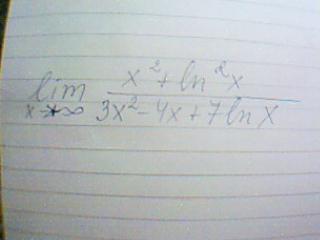 lim x→∞ (x² + ln² x) / (3x² - 4x + 7 ln x)